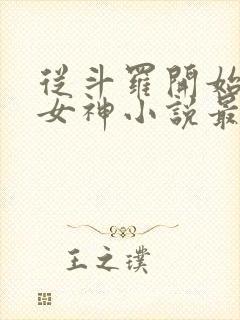 從斗羅開始
女神小說最
王之璞